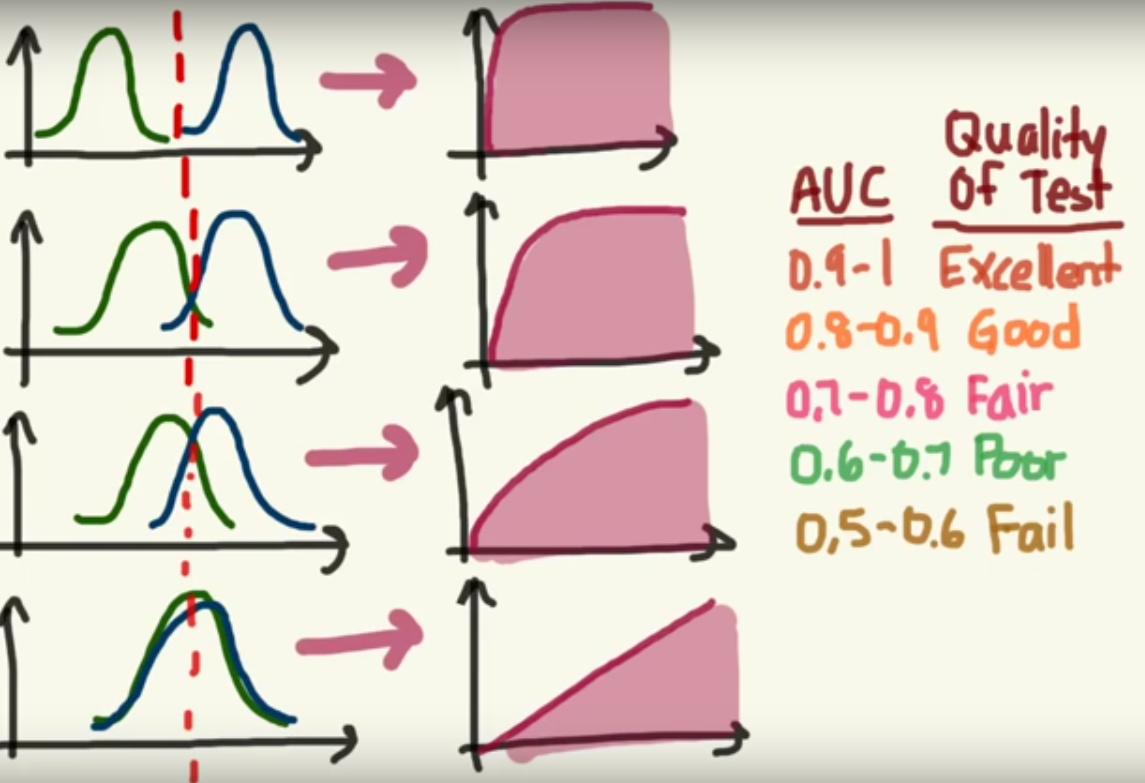 AUC Quality Of Test
0.9-1 Excellent
0.8-0.9 Good
0,7-0.8 Fair
0.6-0.7 Poor
0,5-0.6 Fail